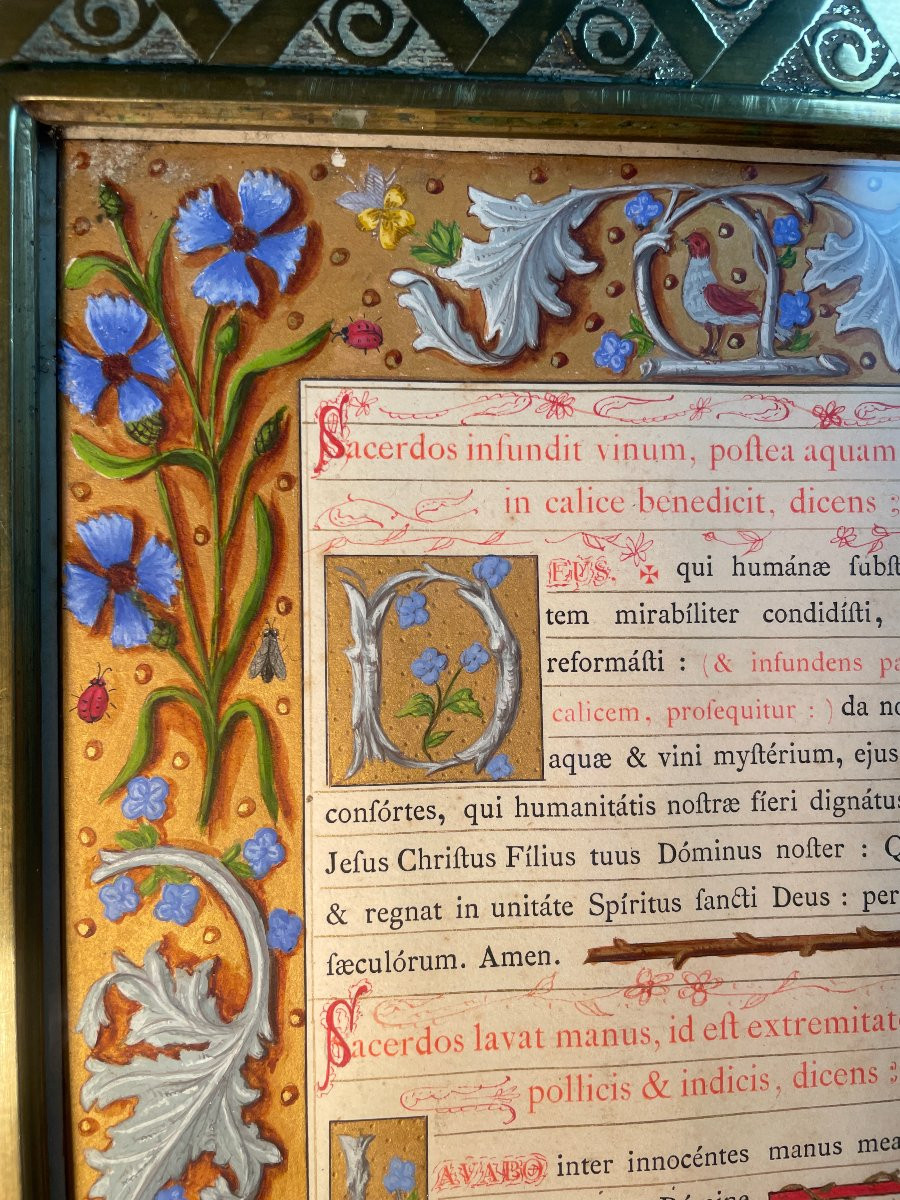 Sacerdos infundit vinum, poſtea aquam
in calice benedicit, dicens :
DEUS. ✠ qui humánæ ſubſt
tem mirabíliter condidíſti,
reformáſti : (& infundens pa
calicem, proſequitur : ) da no
aquæ & vini myſtérium, ejus
conſórtes, qui humanitátis noſtræ fíeri dignátus
Jeſus Chriſtus Fílius tuus Dóminus noſter : Q
& regnat in unitáte Spíritus ſancti Deus : per
ſæculórum. Amen.
Sacerdos lavat manus, id eſt extremitat
pollicis & indicis, dicens :
LAVABO inter innocéntes manus mea
Dómine